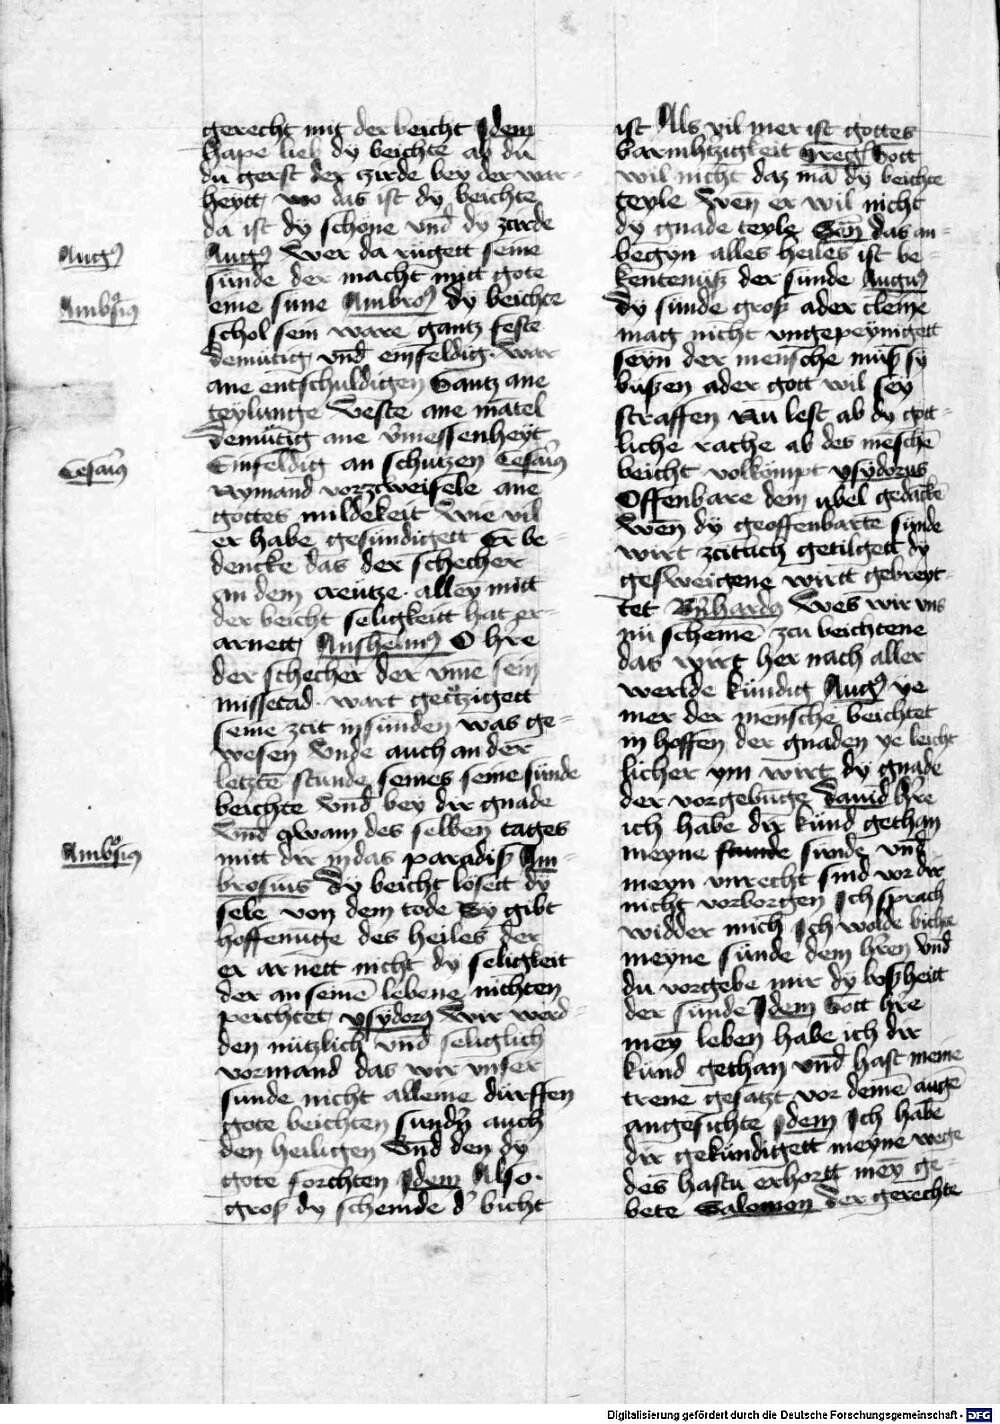 gerecht mit der beicht Jdem
hape lieb dy beichte ab du
du gerst der zirde bey der war-
heytt wo das ist dy beichte
da ist dy schone vnd dy zirde
Augꝰ Wer da rugett seine
sunde der macht mitt gote
eine sune Ambroꝰ dy beichte
schol sein ware gantz feste
demutig vnd einfeldig. war
ane entschuldigen Gantz ane
teylunge Veste ane mātel
demutig ane v̄messenheyt
Einfeldig an schutzen Cesariꝰ
Nymand vorzcweifele ane
gottes mildekeit Wie vil
er habe gesundigett Er be-
dencke das der schecher
an dem creutze. alley mitt
der beicht seligkeitt hat er-
arnett Anshelmꝰ O hre
der schecher der vme sein
missetad. wart geczigett
seine zeit in sunden was ge-
wesen Vnde auch an der
letztē stunde seines seine sunde
beichte Vnd bey dir gnade
Vnd qwam des selben tages
mitt dir in das paradiß Am-
brosius Dy beicht loset dy
sele von dem tode Sy gibt
hoffenuge des heiles der
er arnett nicht dy seligkeit
der an seinē lebene nichten
peichtet ysydorꝰ Wir werd-
den nutzlich vnd seliglich
vormand das wir vnser
sunde nicht alleine durffen
gote beichten sundn̄ auch
den heiligen Vnd den dy
gote forchten Jdem Also.
groß dy scheinde d' bicht
Augꝰ
Ambrosiꝰ
Cesariꝰ
Ambrosiꝰ
ist Als vil mer ist gottes
barmhtzigkeit Greg Gott
wil nicht daz mā dy beichte
teyle Wen er wil nicht
dy gnade teyle Sen das an-
begyn alles heiles ist be-
kentenuß der sunde Augꝰ
Dy sunde groß ader cleine
mag nicht vngepeynigett
seyn der mensche muß sy
bußen ader gott wil sey
straffen Nu lest ab dy gott-
liche rache ab des meschē
beicht volkompt ysydorus
Offenbare dem ubel gedācke
Wen dy geoffenbarte sunde
wirt zcituch getilgett dy
gesweigene wirtt gebreyt-
tet Bn̄hardꝰ Wes wir vns
nu schemē zcu beichtene
das wirt her nach aller
werlde kundig Augꝰ ye
mer der mensche beichtet
in hoffen der gnaden ye leicht-
licher ym wirt dy gnade
der vorgebuge Dauid h're
ich habe dir kund gethan
meyne sunde sunde vnd
meyn vnrecht sind vor dir
nicht vorborgen Jch sprach
widder mich Jch wolde bichte
meyne sunde dem h'ren Vnd
du vorgebe mir dy boßheitt
der sunde Jdem Gott hre
mey leben habe ich dir
kund gethan vnd hast meine
trene gesatzt vor deinē augē
angesichte Jdem Jch habe
dir gekundigett meyne wege
des hastu erhortt mey ge-
bete Salomon Der gerechte
Digitalisierung gefördert durch die Deutsche Forschungsgemeinschaft - DFG